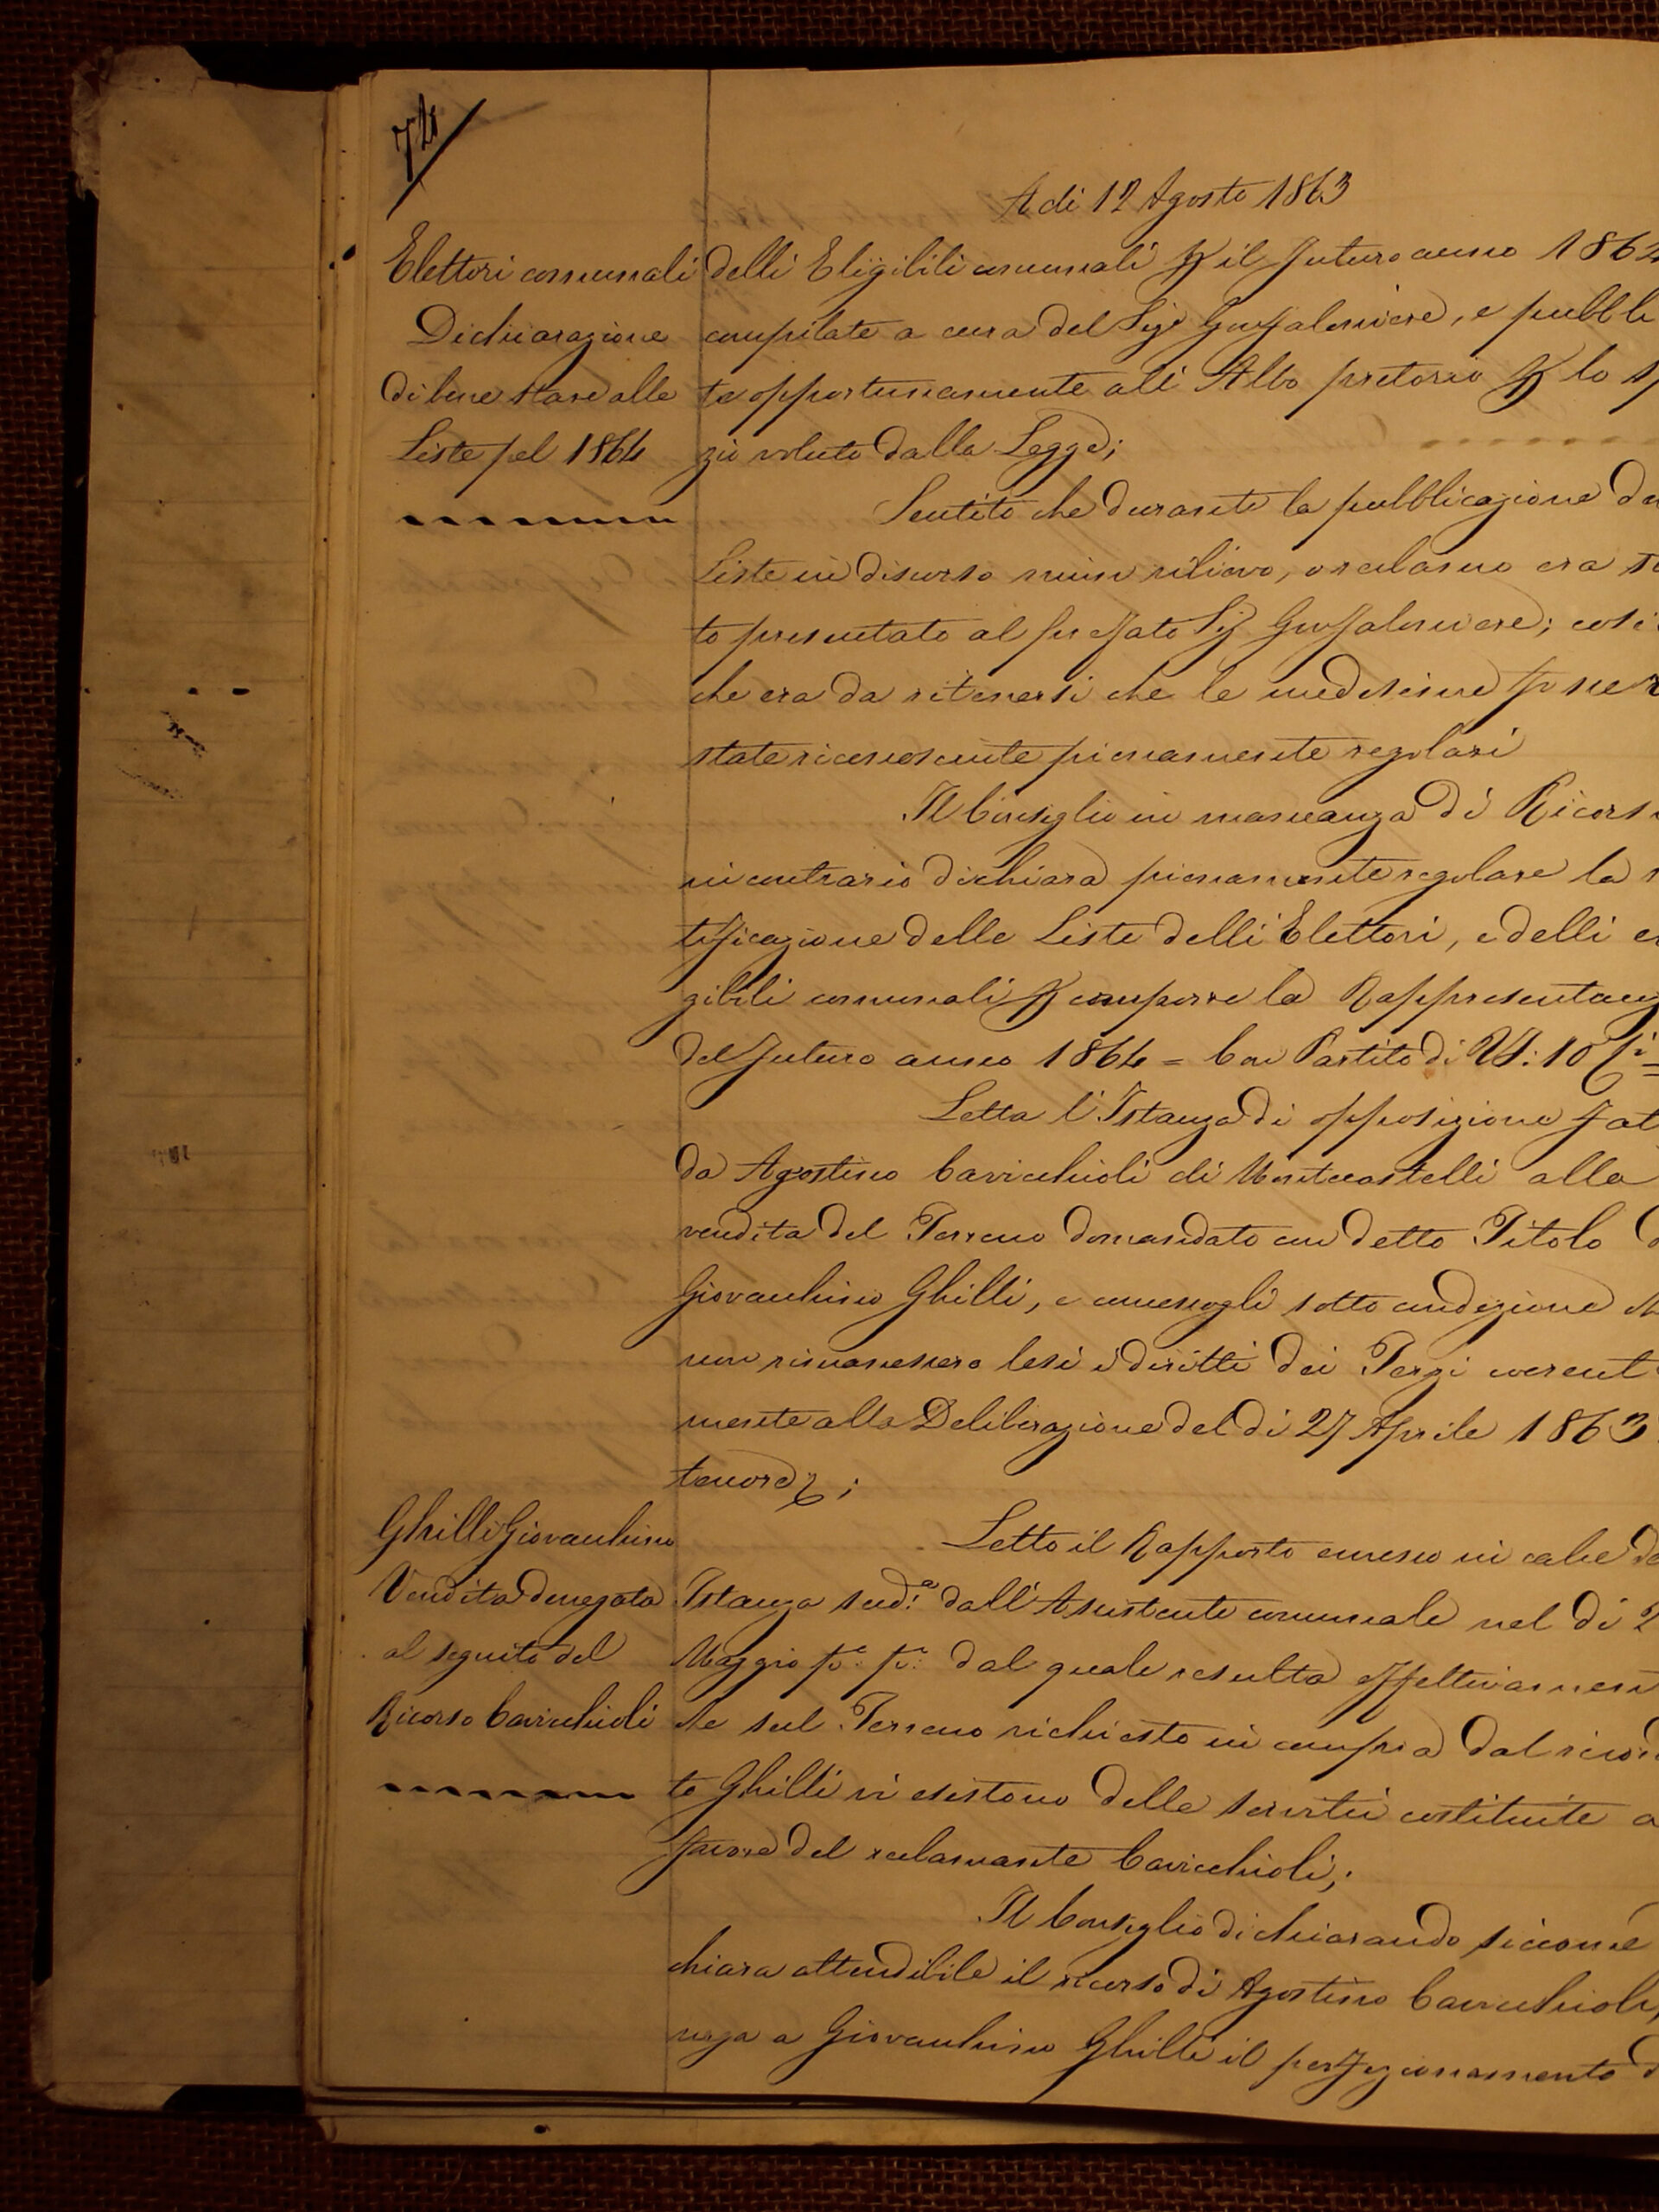 74
A di 12 Agosto 1863
Elettori comunali
Dichiarazione
di bene stare alle
Liste pel 1864
delli Eligibili comunali p il futuro anno 1864
compilate a cura del Sigr Gonfaloniere, e pubbli
te opportunamente all' Albo pretorio p lo sp
zio voluto dalla Legge;
Sentito che durante la pubblicazione de
Liste in discorso niun rilievo, o reclamo era st
to presentato al prefato Sig. Gonfaloniere; cosi
che era da ritenersi che le medesime fosser
state riconosciute pienamente regolari
Il Consiglio in mancanza di Ricorsi
in contrario dichiara pienamente regolare la r
tificazione delle Liste delli Elettori, e delli e
gibili comunali p comporre la Rappresentanz
del futuro anno 1864 = Con Partito di Vf: 10 fi =
Letta l'Istanza di opposizione fat
da Agostino Cavicchioli di Montecastelli alla
vendita del Terreno domandato con detto Titolo d
Giovacchino Ghilli, e concessogli sotto condizione ch
non rimanessero lesi i diritti dei Terzi coerent
mente alla Deliberazione del di 27 Aprile 1863
tenore ;
Ghilli Giovacchino
Vendita denegata
al seguito del
Ricorso Cavicchioli
Letto il Rapporto emesso in calce de
Istanza sud.a dall' Assistente comunale nel di 2
Maggio p.o p.o dal quale resulta effettivamen
che sul Terreno richiesto in compra dal ricord
to Ghilli vi esistono delle servitù costituite a
favore del reclamante Cavicchioli;
Il Consiglio dichiarando siccome
chiara attendibile il ricorso di Agostino Cavicchioli,
nega a Giovacchino Ghilli il perfezionamento d